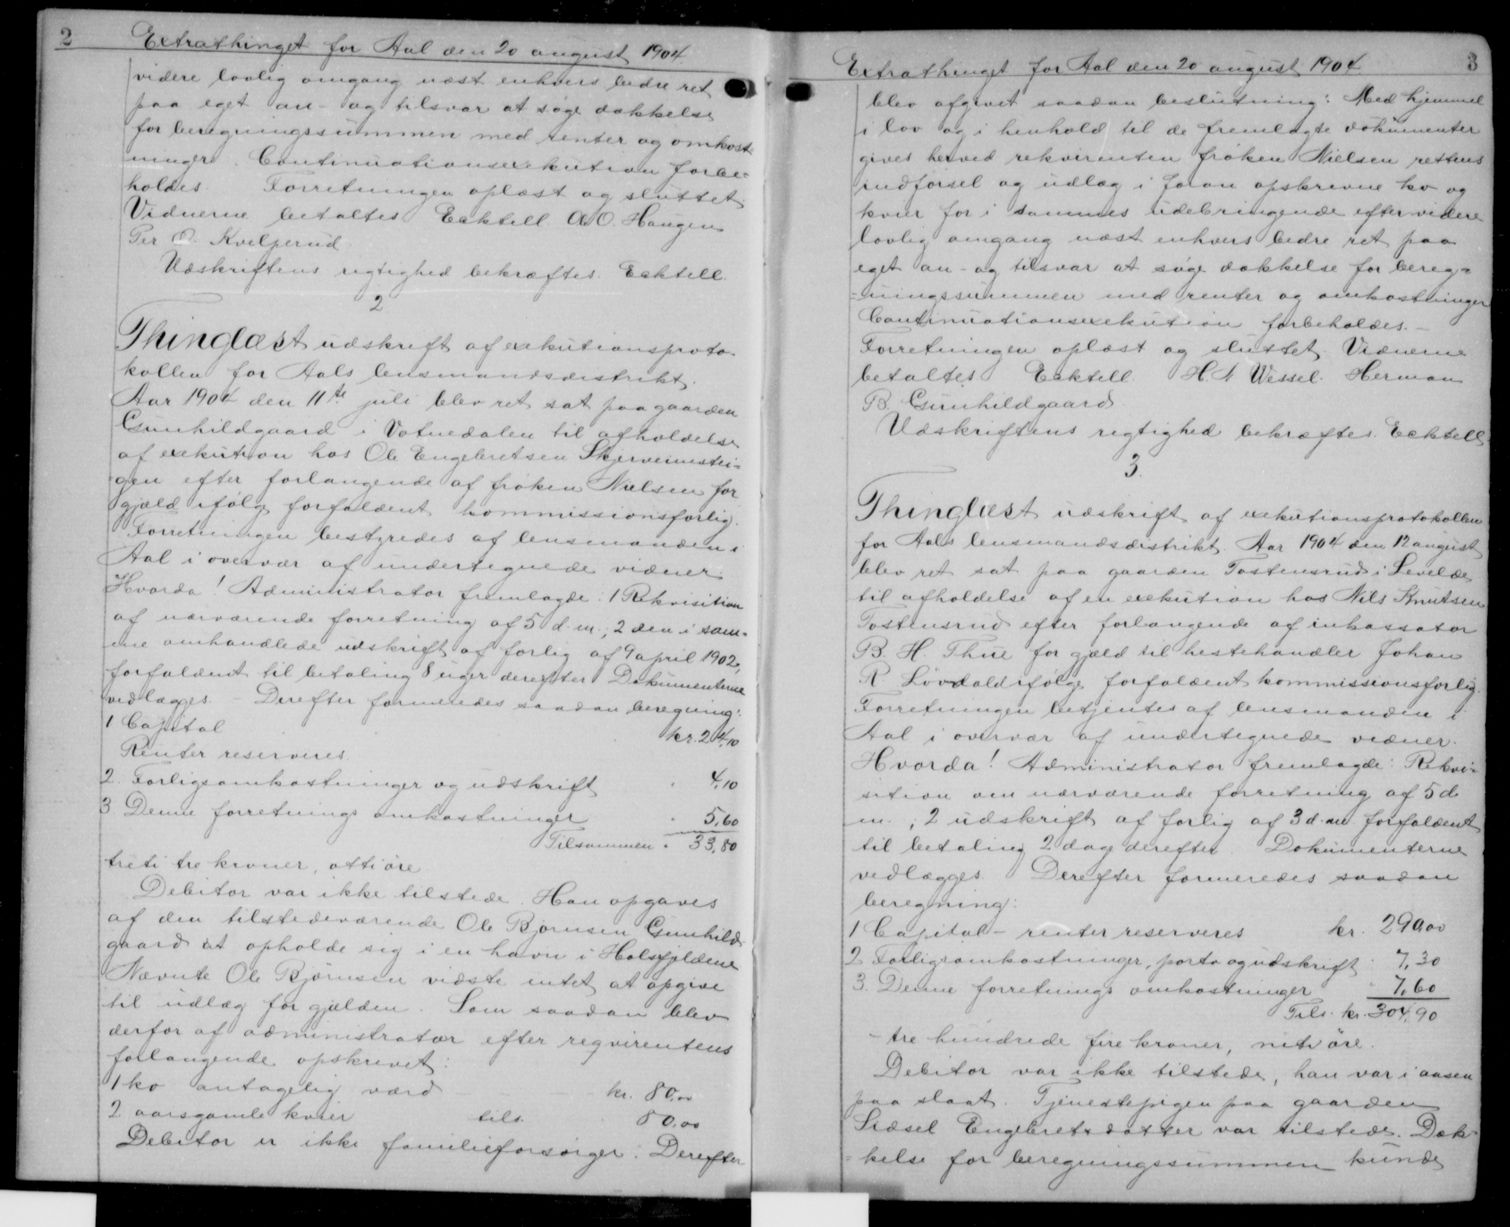 2 Extrathinget for Aal den 20 august 1904
videre lovlig omgang næst enhvers bedre ret
paa eget an- og tilsvar at søge dækkelse
for beregningssummen med renter og omkost-
ninger. Continuationsexekution forbe-
holdes. Forretningen oplæst og sluttet
Vidnerne betaltes Ecktell A O. Haugen
Per O. Kvelprud
Udskriftens rigtighed bekræftes. Ecktell
2
Thinglæst udskrift af exekutionsproto-
kollen for Aals lensmandsdistrikt.
Aar 1904 den 11te juli blev ret sat paa gaarden
Gunhildgaard i Votnedalen til afholdelse
af exekution hos Ole Engebretsen Skjerveimstei-
gen efter forlangende af frøken Nielsen for
gjæld ifølg forfaldent kommissionsforlig.
Forretningen bestyredes af lensmanden i
Aal i overvær af undertegnede vidner
Hvorda! Administrator fremlagde: 1 Rekvisition
af nærværende forretning af 5 d. m., 2 den i sam-
me omhandlede udskrift af forlig af 9 april 1902,
forfaldent til betaling 8 uger derefter Dokumenterne
vedlægges - Derefter formeredes saadan beregning:
1 Capital kr. 24,10
Renter reserveres
2. Forligsomkostninger og udskrift " 4,10
3 Denne forretnings omkostninger " 5,60
Tilsammen " 33,80
treti tre kroner, otti øre
Debitor var ikke tilstede. Han opgaves
af den tilstedeværende Ole Bjørnsen Gunhild-
gaard at opholde sig i en havn i Holsfjeldene
Nævnte Ole Bjørnsen vidste intet at opgive
til udlæg for gjælden. Som saadan blev
derfor af administrator efter reqvirentens
forlangende opskrevet:
1 ko antagelig værd kr. 80,00
2 aarsgamle kvier tils. 80,00
Debitor er ikke familieforsørger. Derefter
Extrathinget for Aal den 20 august 1904 3
blev afgivet saadan beslutning: Med hjemmel
i lov og i henhold til de fremlagte dokumenter
gives herved rekvirenten frøken Nielsen rettens
indførsel og udlæg i foran opskrevne ko og
kvier for i sammes udebringende efter videre
lovlig omgang næst enhvers bedre ret paa
eget an- og tilsvar at søge dækkelse for bereg-
-ningssummen med renter og omkostninger
Continuationsexekution forbeholdes. -
Forretningen oplæst og sluttet Vidnerne
betaltes Ecktell. H. N Wessel. Herman
B. Gunhildgaard
Udskriftens rigtighed bekræftes. Ecktell
3.
Thinglæst udskrift af exekutionsprotokollen
for Aals lensmandsdistrikt. Aar 1904 den 12 august
blev ret sat paa gaarden Tostensrud i Leveldt
til afholdelse af en exekution hos Nils Knutsen
Tostensrud efter forlangende af inkassator
B. H. Thue for gjæld til hestehandler Johan
R Løvdal ifølge forfaldent kommissionsforlig.
Forretningen betjentes af lensmanden i
Aal i overvær af undertegnede vidner.
Hvorda! Administrator fremlagde: Rekvi-
sition om nærværende forretning af 5 d
m., 2 udskrift af forlig af 3 d. m forfaldent
til betaling 2 dage derefter. Dokumenterne
vedlægges Derefter formeredes saadan
beregning:
1 Capital - renter reserveres kr. 290,00
2 Forligsomkostninger, porto og udskrift " 7,30
3. Denne forretnings omkostninger " 7,60
Tils. kr. 304,90
- tre hundrede fire kroner, niti øre.
Debitor var ikke tilstede, han var i aasen
paa slaat. Tjenestepigen paa gaarden
Sidsel Engebretsdatter var tilstede. Dæk-
-kelse for beregningssummen kunde